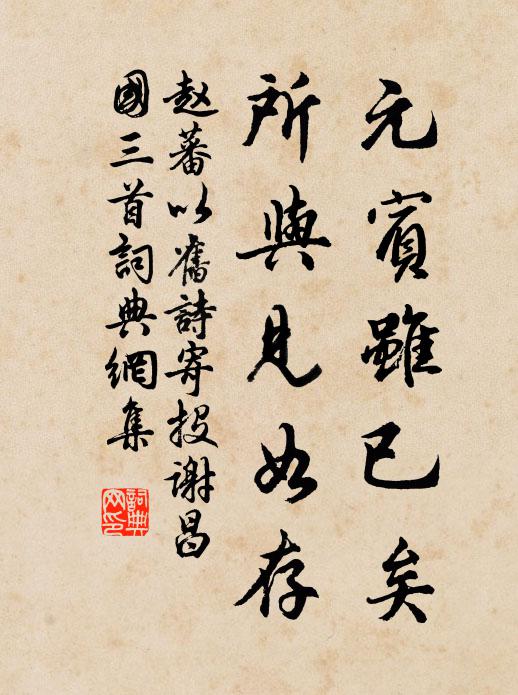 元賓雖已矣
所與見如存
赵蕃以舊詩寄投谢昌
國三首詞典網集
詞典網印